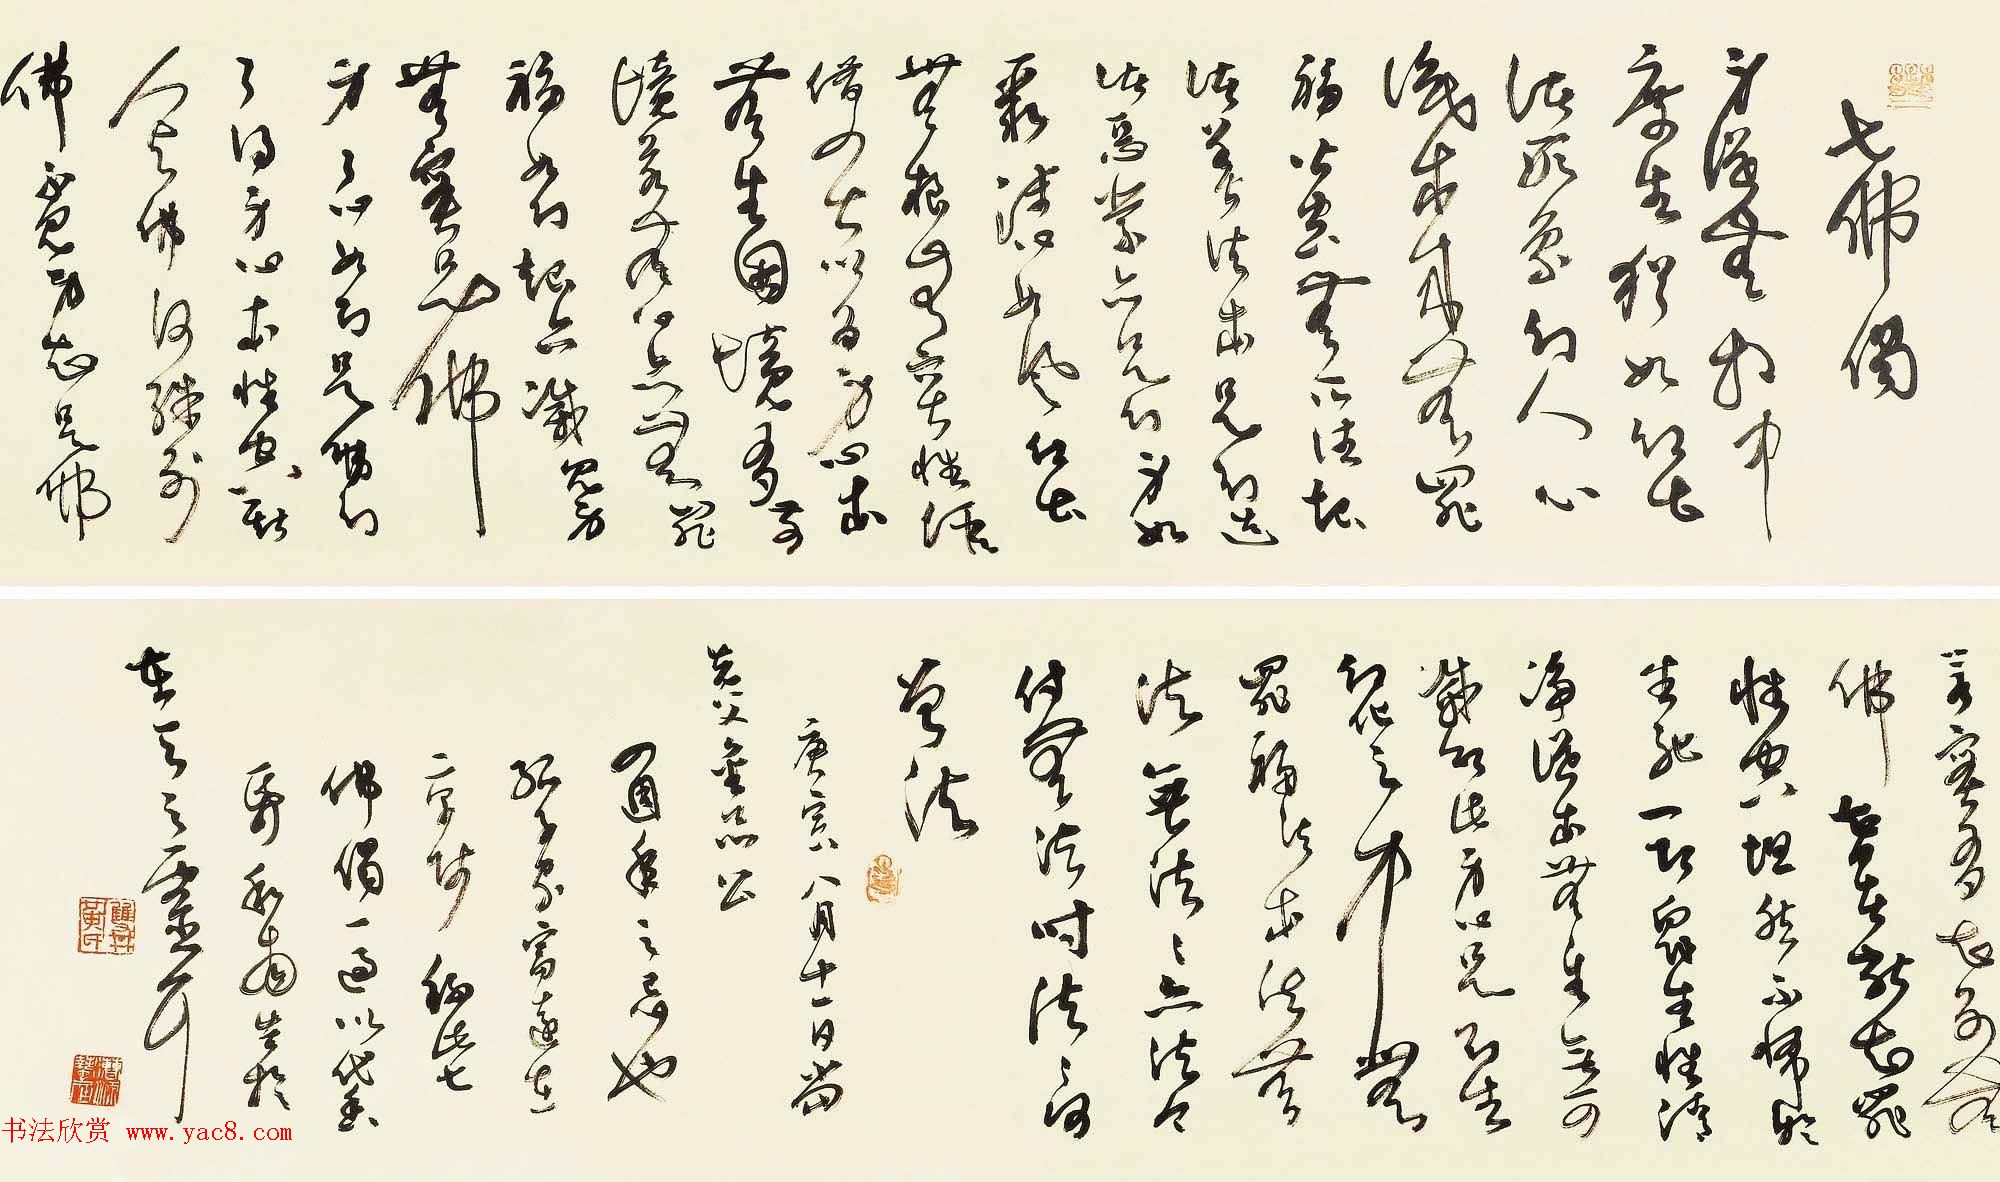 七佛偈
身從無相中
受生猶如幻出
諸形象幻人心
識本來無罪
福皆空無所住起
諸善法本是幻造
諸惡業亦是幻身如
聚沫心如風幻出
無根無實性假
借四大以為身心本
無生因境有前
境若無心亦無罪
福如幻起亦滅見身
無實是佛
身了心如幻是佛幻
了得身心本性空斯
人與佛何殊別
佛不見身知是佛
若實有知別無
佛智者能知罪
性空坦然不怖於
生死一切眾生性清
淨從本無生無可
滅即此身心是幻生
幻化之中無
罪福法本法無
法無法法亦法今
付無法時法法何
曾法
庚寅八月十一日當
先父公
四周年之忌也
孤子家富遠在
此七
佛偈一過以代奠
和南於
在天之靈
书法欣赏 www.yac8.com